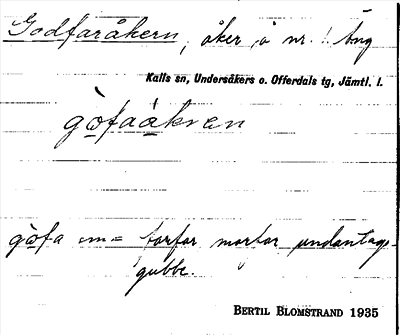 Godfaråkern, åker å nr 1 Äng
Kalls sn, Undersåkers o. Offerdals tg, Jämtl. l.
gòfaàkren
gòfa m = farfar morfar undantags-
gubbe.
BERTIL BLOMSTRAND 1935